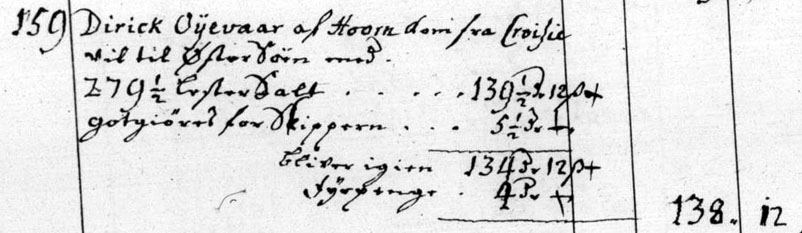 159 Dirick Oÿevaar af Hoorn kom fra Croisie
vil til Øster Söen med.
279½ lester Salt . . . . . 139½ Dr 12 β +
godtgiöres for Skippern . . . 5½ Dr +
bliver igien 134 Dr 12 β +
Fÿrpenge . 4 Dr +
138. 12